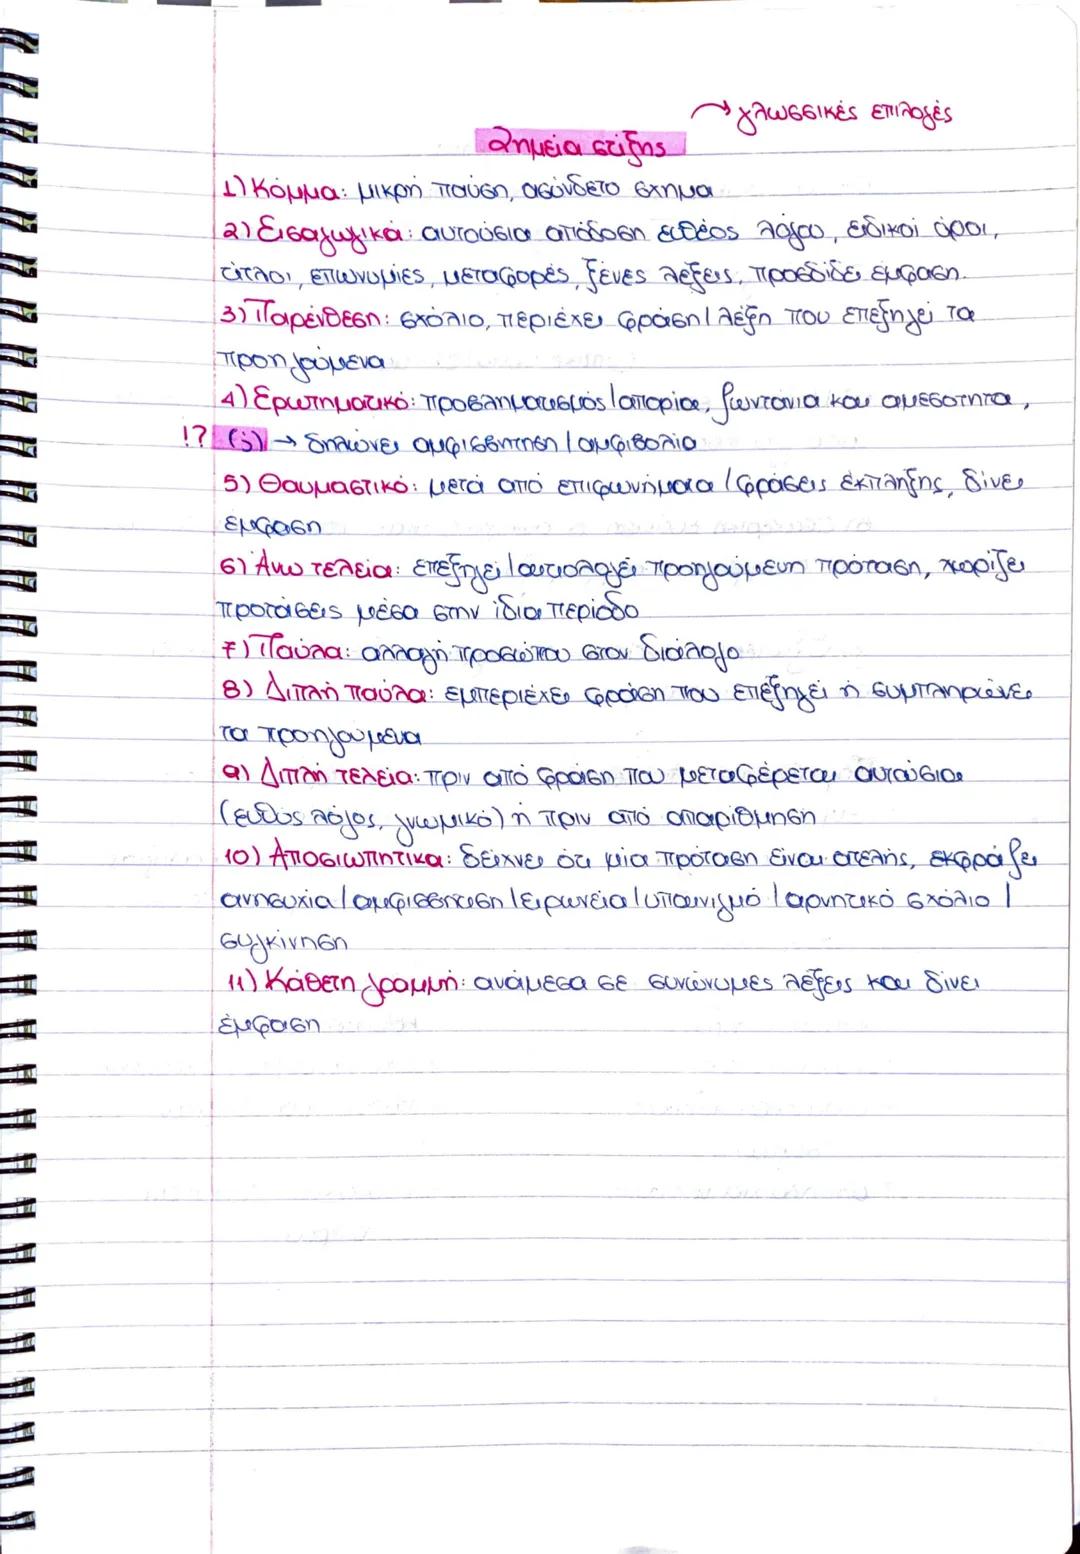 → γλωσσικές επιλογές
Σημεία στίξης
1) Κόμμα: μικρή παύση, ασύνδετο σχήμα
2) Εισαγωγικά: αυτούσια απόδοση ευθέος λόγου, ειδικοί όροι,
τίτλοι, επωνυμίες, μεταφορές, ξένες λέξεις, προσδίδει έμφαση.
3) Παρένθεση: σχόλιο, περιέχει φράση/λέξη που επεξηγεί τα
προηγούμενα
4) Ερωτηματικό: προβληματισμός/απορία, ζωντάνια και αμεσότητα,
!? (;) → δηλώνει αμφισβήτηση/αμφιβολία
5) Θαυμαστικό: μετά από επιφωνήματα/φράσεις έκπληξης, δίνει
έμφαση
6) Άνω τελεία: επεξηγεί/αιτιολογεί προηγούμενη πρόταση, χωρίζει
προτάσεις μέσα στην ίδια περίοδο
7) Παύλα: αλλαγή προσώπου στον διάλογο
8) Διπλή παύλα: εμπεριέχει φράση που επεξηγεί ή συμπληρώνει
τα προηγούμενα
9) Διπλή τελεία: πριν από φράση που μεταφέρεται αυτούσια
(ευθύς λόγος, γνωμικό) ή πριν από απαρίθμηση
10) Αποσιωπητικα: δείχνει ότι μία πρόταση είναι ατελής, εκφράζει
ανησυχία/αμφισβήτηση/ειρωνεία/υπαινιγμό/αρνητικό σχόλιο/
συγκίνηση
11) Κάθετη γραμμή: ανάμεσα σε συνώνυμες λέξεις και δίνει
έμφαση